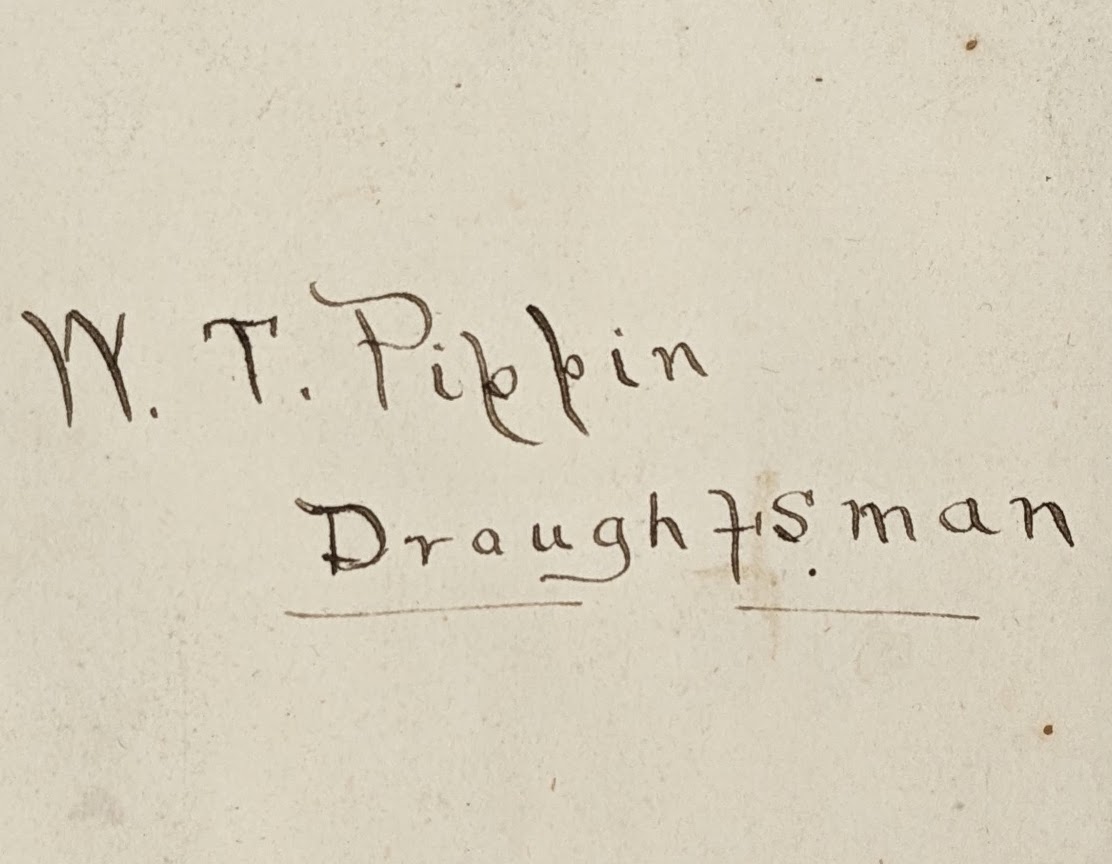 W. T. Pippin
Draughtsman